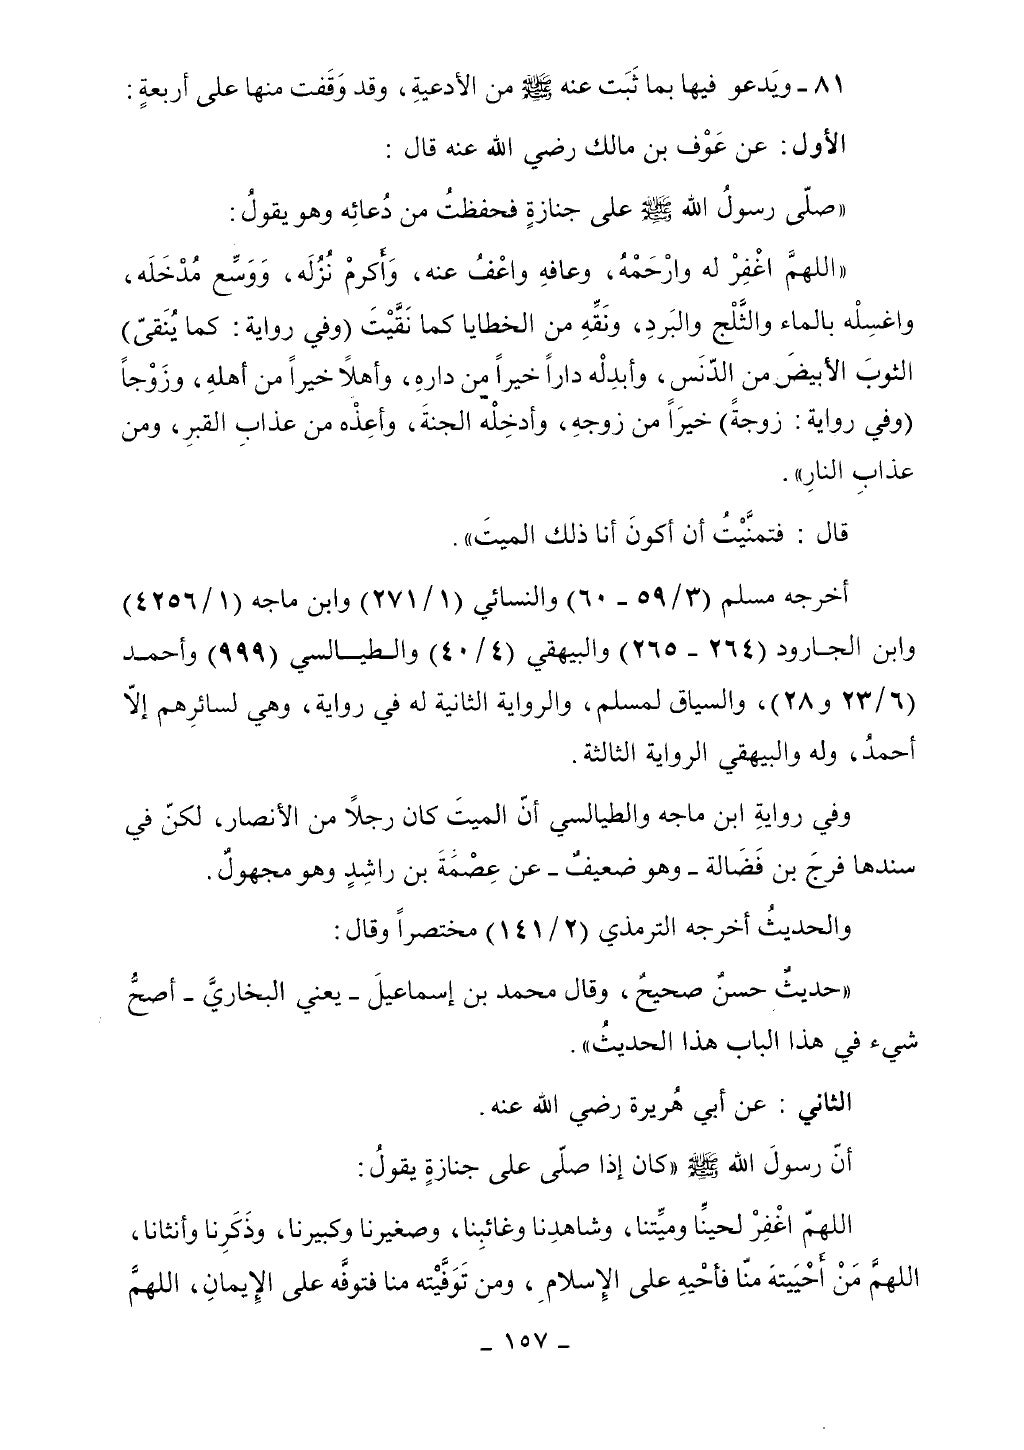 ٨١ ـ ويَدعو فيها بما ثَبَت عنه ﷺ من الأدعيةِ، وقد وَقَفت منها على أربعةٍ:
الأول: عن عَوْف بن مالك رضي الله عنه قال :
«صلّى رسولُ الله ﷺ على جنازةٍ فحفظتُ من دُعائِه وهو يقولُ:
«اللهمَّ اغْفِرْ له وارْحَمْهُ، وعافهِ واعْفُ عنه، وَأَكرمْ نُزُلَه، وَوَسِّع مُدْخَلَه،
واغسِلْه بالماء والثَّلْج والبَردِ، ونَقِّهِ من الخطايا كما نَقَّيْتَ (وفي رواية: كما يُنَقىّ)
الثوبَ الأبيضَ من الدّنَس، وأبدِلْه داراً خيراً من دارهِ، وأهلاً خيراً من أهلهِ، وزَوْجاً
(وفي رواية: زوجةً) خيرَاً من زوجهِ، وأدخِلْه الجنةَ، وأعِذْه من عذابِ القبرِ، ومن
عذابِ النارِ».
قال : فتمنَّيْتُ أن أكونَ أنا ذلك الميتَ».
أخرجه مسلم (٥٩/٣ ـ ٦٠) والنسائي (٢٧١/١) وابن ماجه (٤٢٥٦/١)
وابن الجارود (٢٦٤ ـ ٢٦٥) والبيهقي (٤٠/٤) والطيالسي (٩٩٩) وأحمد
(٢٣/٦ و ٢٨)، والسياق لمسلم، والرواية الثانية له في رواية، وهي لسائرِهم إلّا
أحمدُ، وله والبيهقي الرواية الثالثة.
وفي روايةِ ابن ماجه والطيالسي أنّ الميتَ كان رجلاً من الأنصار، لكنّ في
سندها فرجَ بن فَضَالة ـ وهو ضعيفٌ ـ عن عِصْمَةَ بن راشِدٍ وهو مجهولٌ.
والحديثُ أخرجه الترمذي (١٤١/٢) مختصراً وقال:
«حديثٌ حسنٌ صحيحٌ، وقال محمد بن إسماعيلَ ـ يعني البخاريَّ ـ أصحُّ
شيء في هذا الباب هذا الحديثُ».
الثاني : عن أبي هُريرة رضي الله عنه.
أنّ رسولَ الله ﷺ «كان إذا صلّى على جنازةٍ يقولُ:
اللهمّ اغْفِرْ لحينِّا وميِّتنا، وشاهدِنا وغائبِنا، وصغيرنا وكبيرنا، وذَكَرِنا وأنثانا،
اللهمَّ مَنْ أَحْيَيتهَ منّا فأحْيهِ على الإسلام، ومن تَوَفَّيْته منا فتوفَّه على الإِيمانِ، اللهمَّ
ـ ١٥٧ ـ